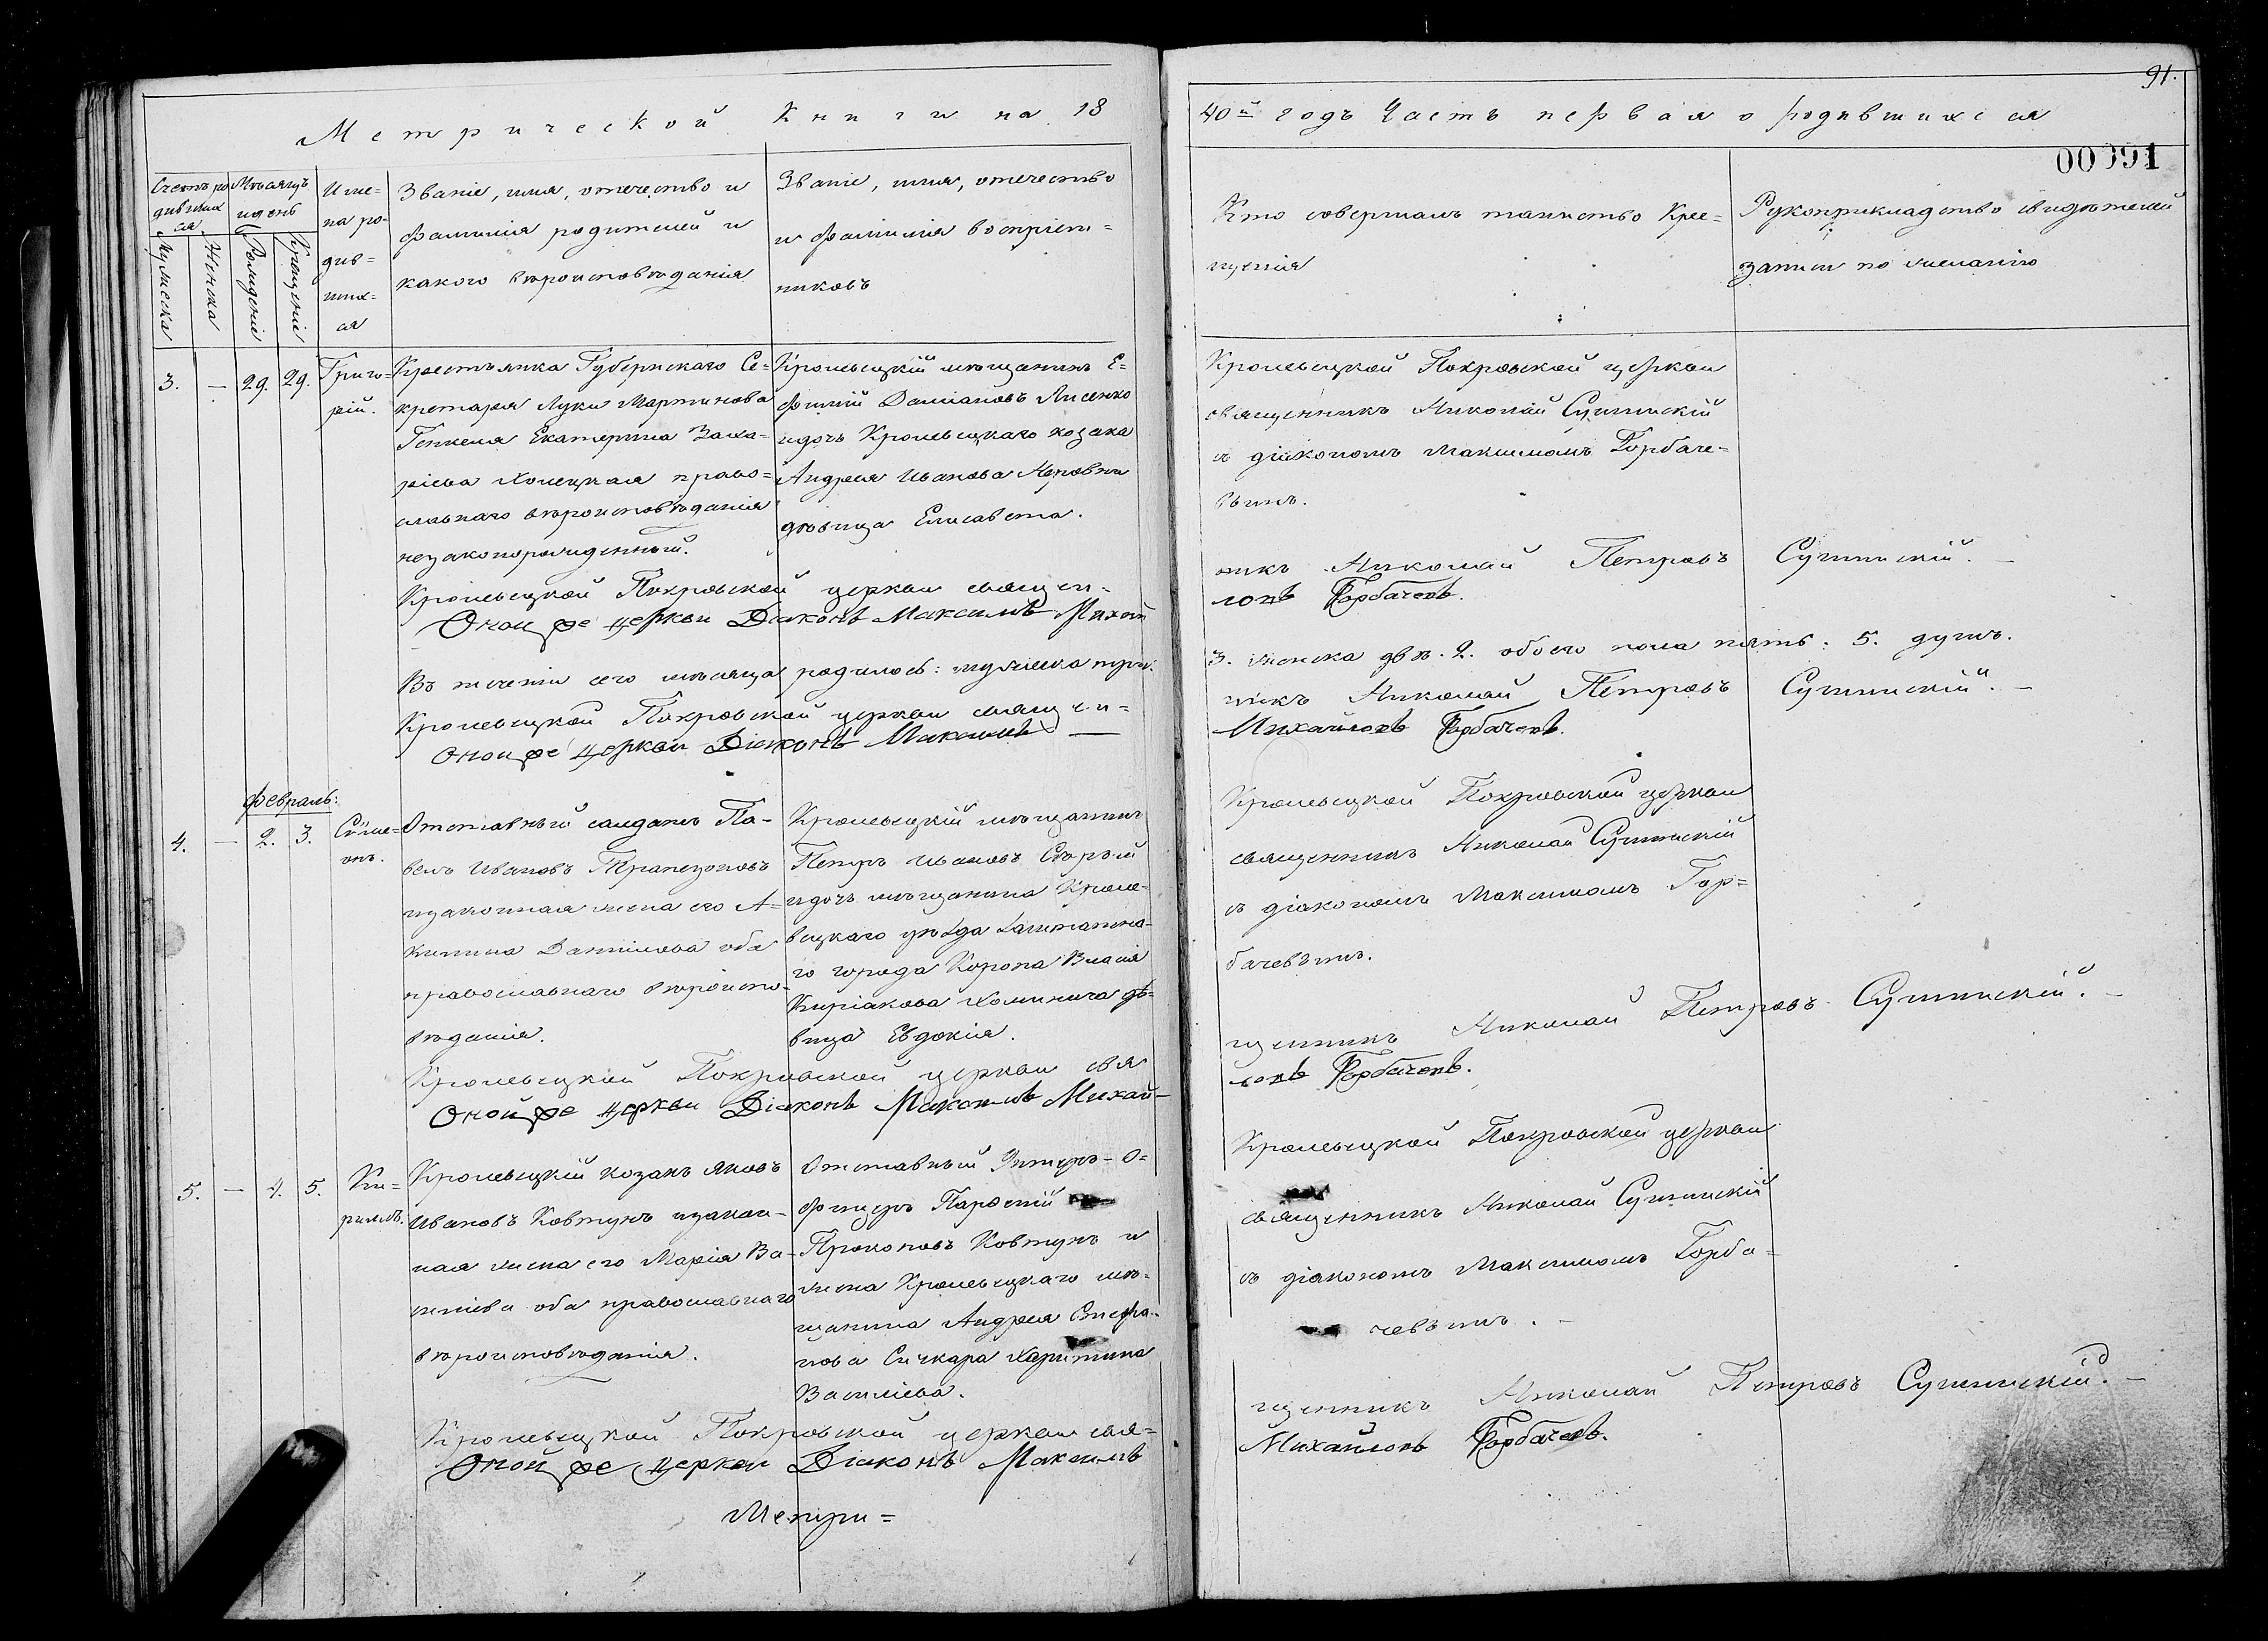 Метрической Книги на 18
40й годъ Часть первая о родившихся
91.
00091
Счетъ ро
дивших
ся
Мужеска
Женска
Мѣсяцъ
и день
Рожденіе
Крещеніе
Име-
на ро-
див-
ших-
ся
Званіе, имя, отчество и
фамилія родителей и
какого вѣроисповѣданія
Званіе, имя, отчество
и фамилія воспріем-
никовъ
Кто совершалъ таинство Кре-
щенія
Рукоприкладство свидѣтелей
записи по желанію
3. — 29. 29.
Григо-
рій.
Крестьянка Губернскаго Се-
кретаря Луки Мартинова
Екатерина Заха-
ріева право-
славнаго вѣроисповѣданія
незаконорожденный.
Кролевецкій мѣщанинъ Е-
фимій Даміановъ Лисенко
и дочь Кролевецкаго козака
Андрея Иванова
дѣвица Елисавета.
Кролевецкой Покровской церкви
священникъ Николай Сушинскій
съ діакономъ Максимомъ Горбаче-
вымъ.
Кролевецкой Покровской церкви священ-
никъ Николай Петровъ Сушинскій. —
Оной же церкви Діаконъ Максимъ Михай
ловъ Горбачевъ.
Въ теченіи сего мѣсяца родилось: мужеска три.
3. женска двѣ. 2. обоего пола пять: 5. душъ.
Кролевецкой Покровской церкви священ-
никъ Николай Петровъ Сушинскій. —
Оной же церкви Діаконъ Максимъ —
Михайловъ Горбачевъ.
Февраль:
4. — 2. 3.
Сѵме-
онъ.
Отставный салдатъ Па-
велъ Ивановъ
и законная жена его А-
килина Даніилова оба
православнаго вѣроиспо-
вѣданія.
Кролевецкій мѣщанинъ
Петръ Ивановъ
и дочь мѣщанина Кроле-
вецкаго уѣзда заштатна-
го города Коропа Власія
Киріакова Хоминича дѣ-
вица Евдокія.
Кролевецкой Покровской церкви
священникъ Николай Сушинскій
съ діакономъ Максимомъ Гор-
бачевымъ.
Кролевецкой Покровской церкви свя
щенникъ Николай Петровъ Сушинскій. —
Оной же церкви Діаконъ Максимъ Михай-
ловъ Горбачевъ.
5. — 4. 5.
Ки-
риллъ.
Кролевецкій козакъ Яковъ
Ивановъ Ковтунъ и закон-
ная жена его Марія Ва-
силіева оба православнаго
вѣроисповѣданія.
Отставный Унтеръ-О-
фицеръ Парфеній
Прокоповъ Ковтунъ и
жена Кролевецкаго мѣ-
щанина Андрея Стефа-
нова Сичкара Харитина
Василіева.
Кролевецкой Покровской церкви
священникъ Николай Сушинскій
съ діакономъ Максимомъ Горба-
чевымъ. —
Кролевецкой Покровской церкви свя-
щенникъ Николай Петровъ Сушинскій. —
Оной же церкви Діаконъ Максимъ
Михайловъ Горбачевъ.
Метри-